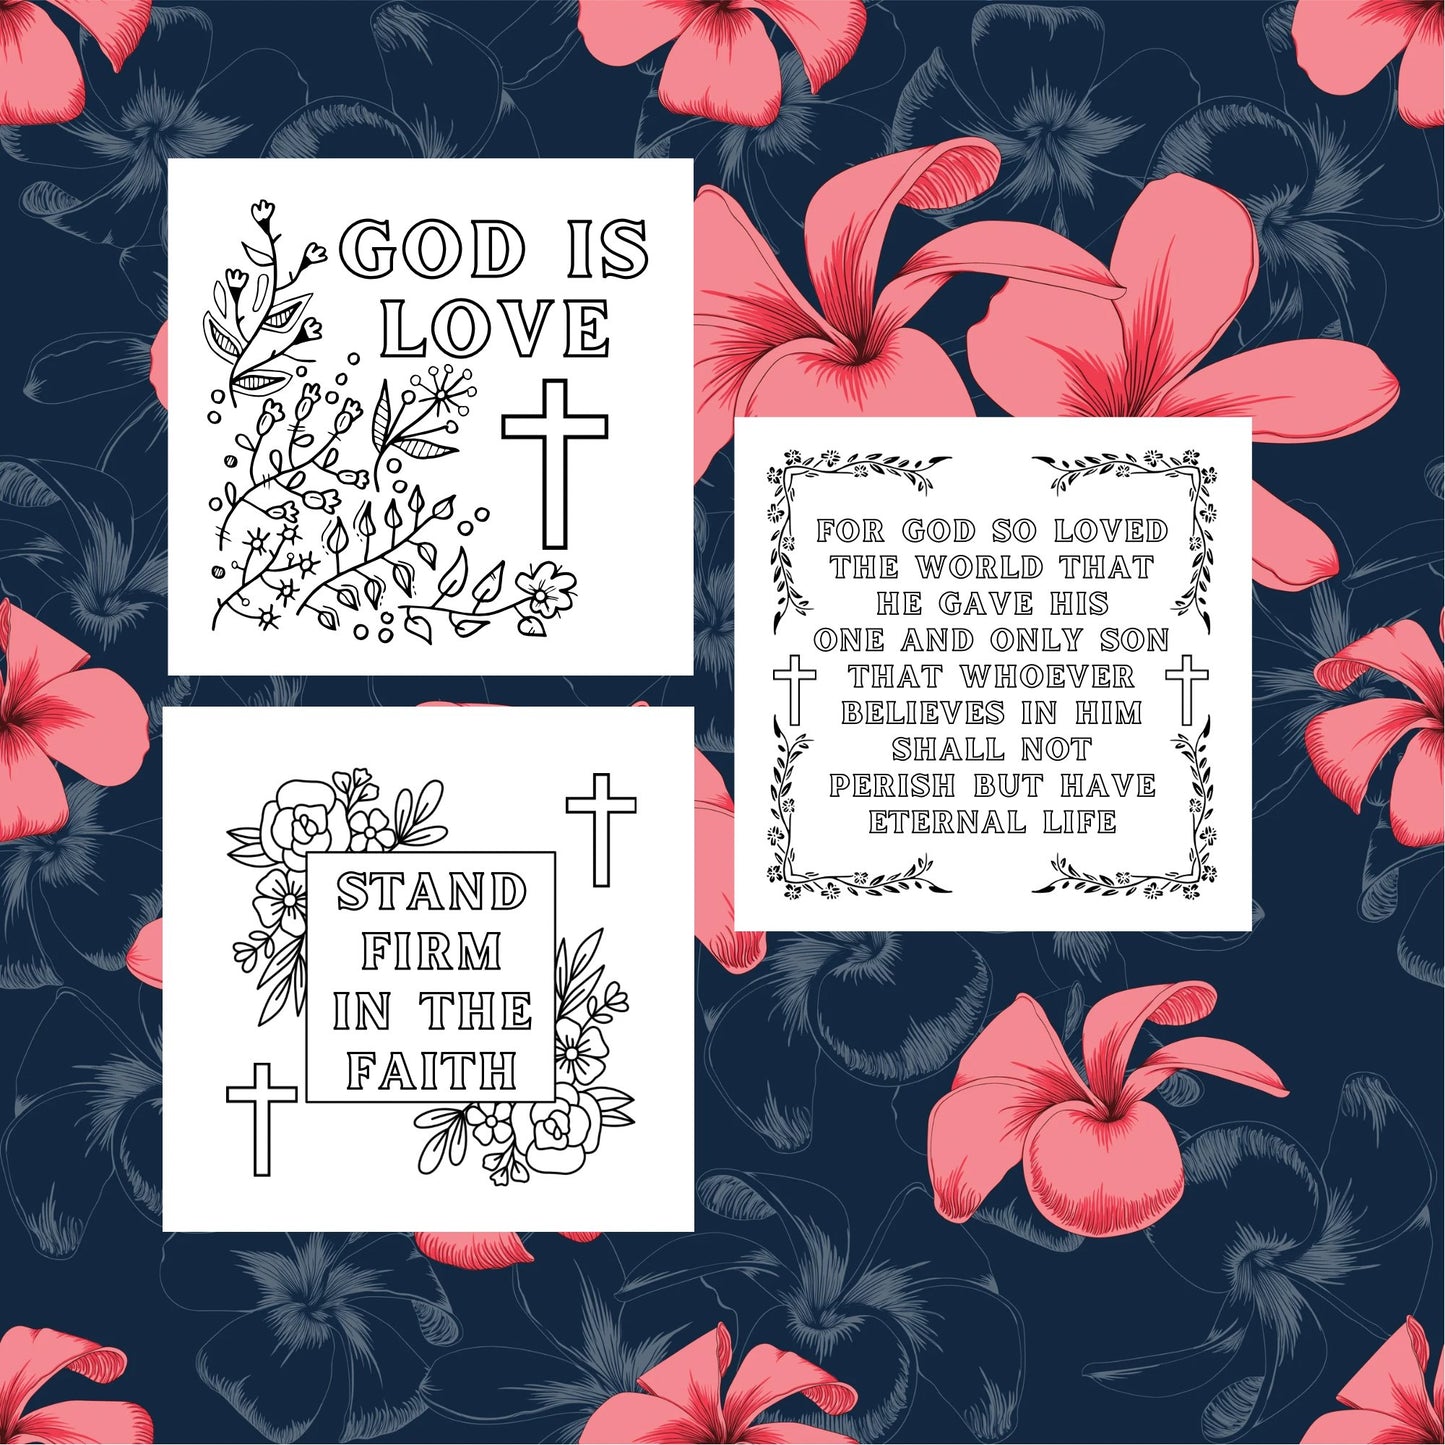 GOD IS
LOVE
FOR GOD SO LOVED
THE WORLD THAT
HE GAVE HIS
ONE AND ONLY SON
THAT WHOEVER
BELIEVES IN HIM
SHALL NOT
PERISH BUT HAVE
ETERNAL LIFE
STAND
FIRM
IN THE
FAITH